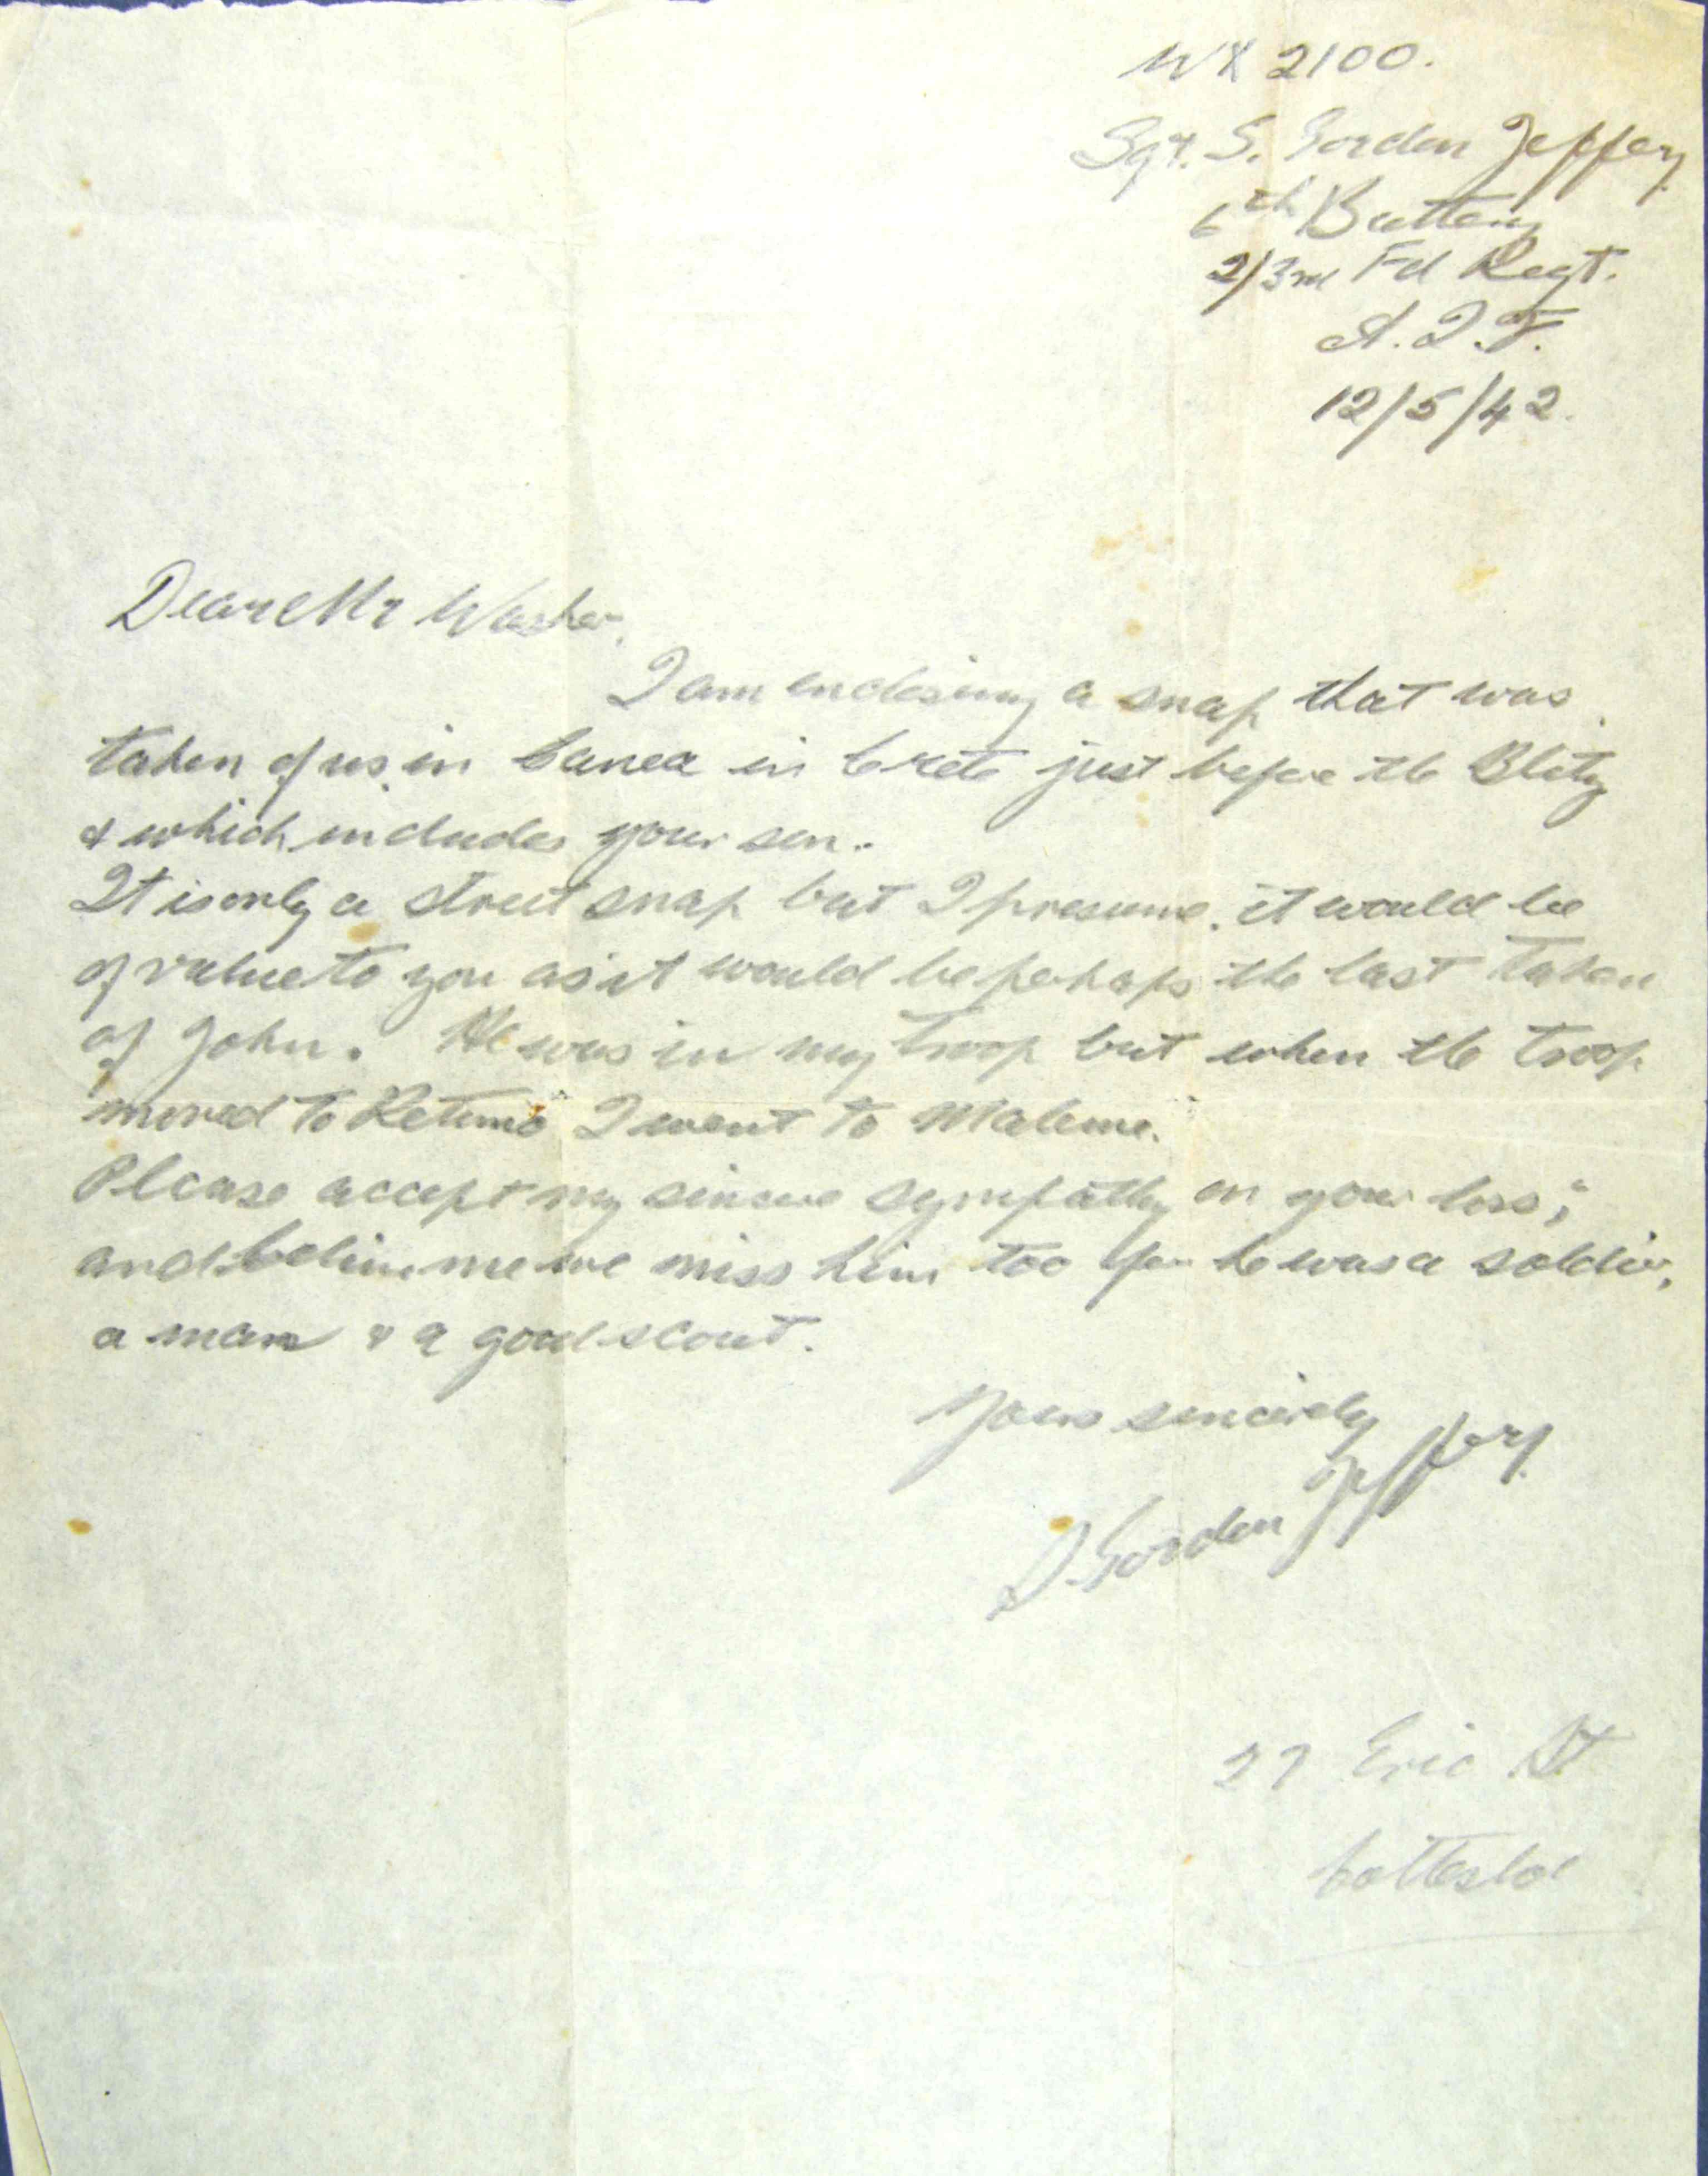 WX 2100.
Sgt. S. Gordon Jeffery
6th Battery
2/3rd Fd Regt.
A.I.F.
12/5/42.
Dear Mr Washer,
I am enclosing a snap that was
taken of us in Canea in Crete just before the Blitz
& which includes your son.
It is only a street snap but I presume it would be
of value to you as it would be perhaps the last taken
of John. He was in my troop but when the troop
moved to Retimo I went to Maleme.
Please accept my sincere sympathy on your loss;
and believe me we miss him too for he was a soldier,
a man & a good scout.
Yours sincerely
S. Gordon Jeffery
27 Eric St
Cottesloe